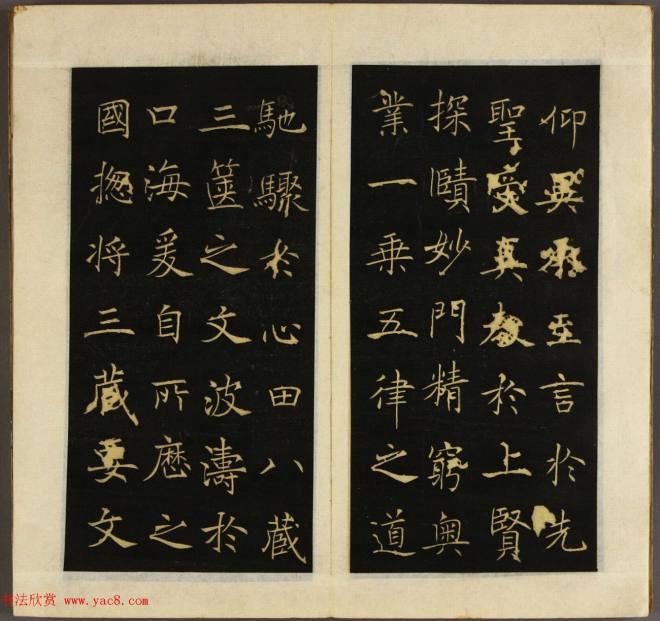 仰異承至言於先
聖受真教於上賢
探賾妙門精窮奥
業一乗五律之道
馳驟於心田八藏
三篋之文波濤於
口海爰自所歷之
國揔将三藏要文
书法欣赏 www.yac8.com